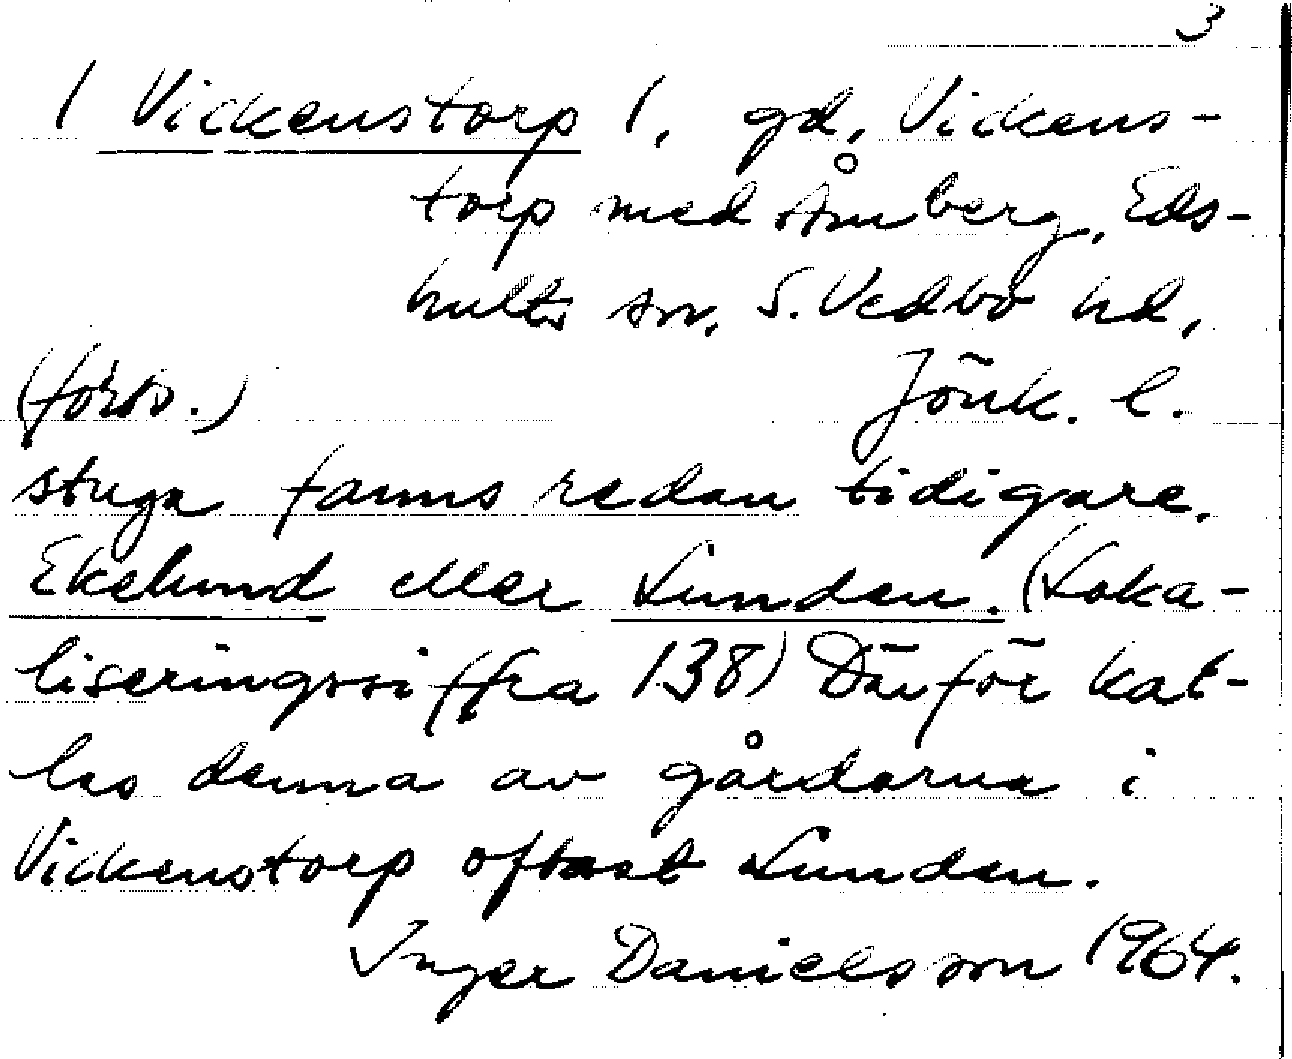 3
/ Vickenstorp 1, gd, Vickens-
torp med Åmberg, Eds-
hults sn, S. Vedbo hd,
(forts.) Jönk. l.
stuga fanns redan tidigare,
Ekelund eller Lunden. (Loka-
liseringssiffra 138) Därför kal-
las denna av gårdarna i
Vickenstorp oftast Lunden.
Inger Danielsson 1964.